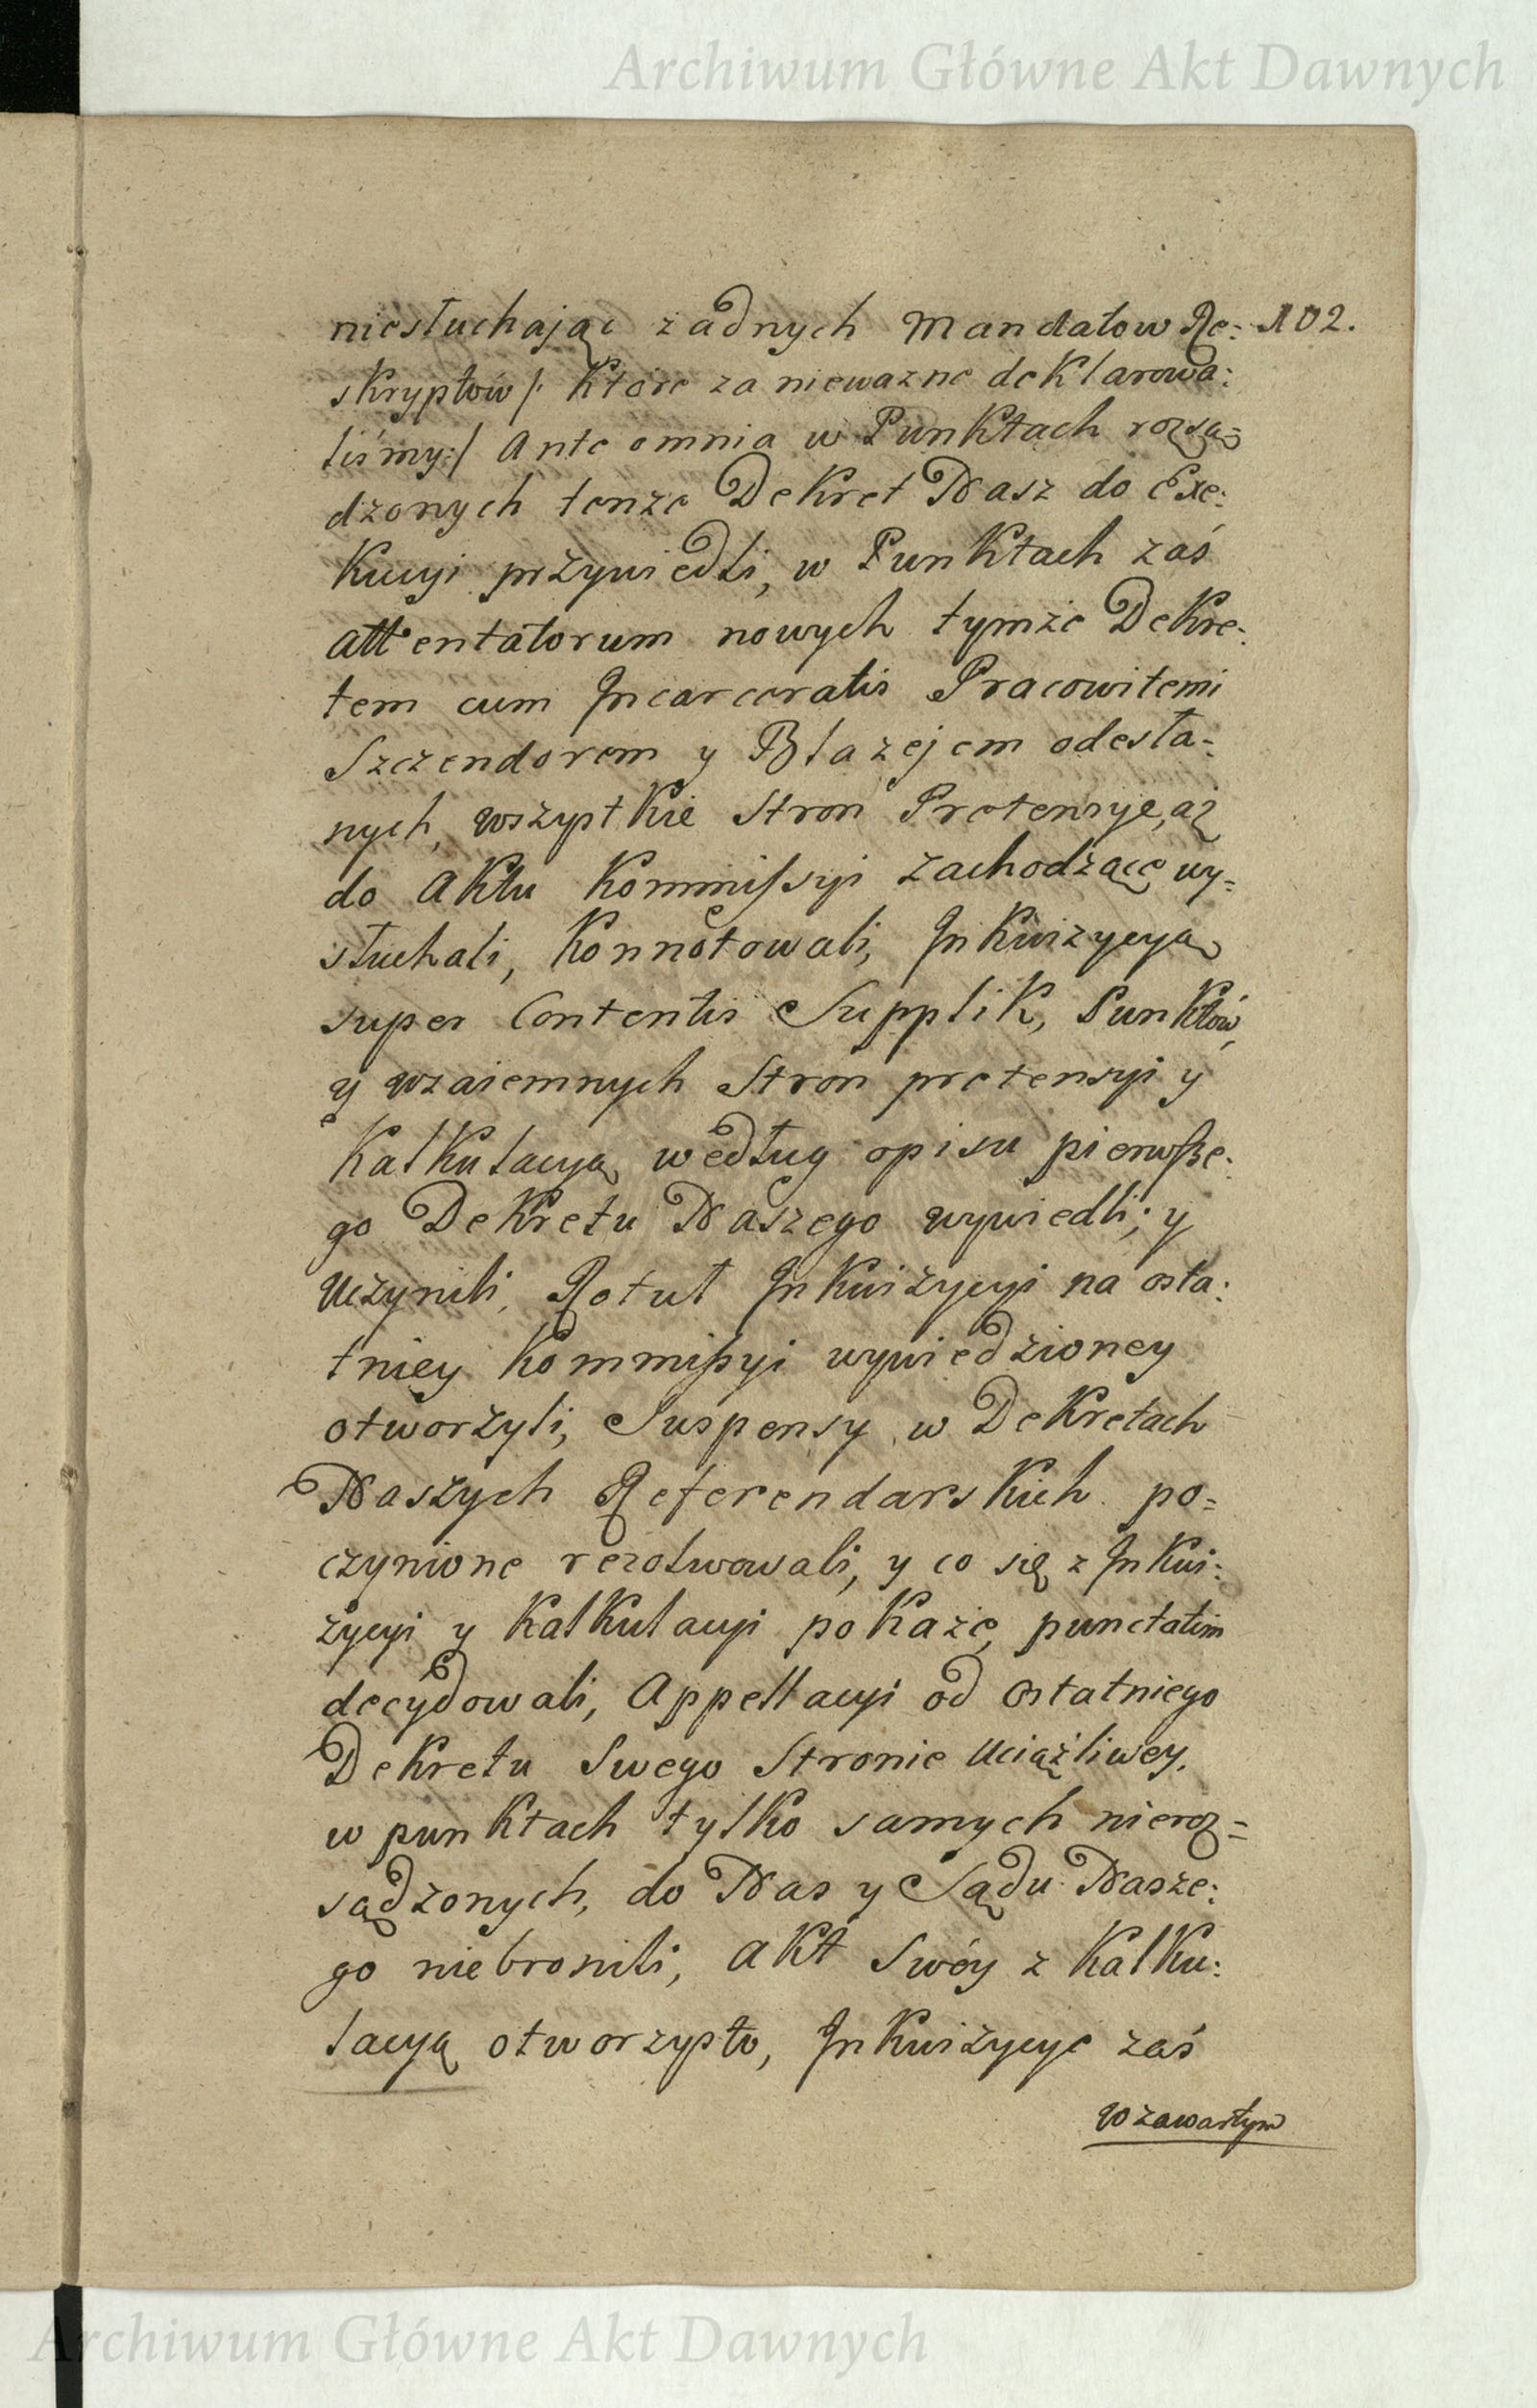 Archiwum Główne Akt Dawnych
niesłuchając żadnych Mandatow Re: 102.
skryptów /: Które za nieważne deklarowa:
liśmy:/ Ante omnia w Punktach rozsą=
dzonych tenże Dekret Nasz do Exe:
kucyi przywiedli, w Punktach zaś
attentatorum nowych tymże Dekre:
tem cum Incarceratis Pracowitemi
Szczendorem y Błażejem odesła=
nych, wszystkie Stron Pretensye, aż
do Aktu Kommissyi zachodzące wy=
słuchali, Konnotowali, Inkwizycyą
super Contentis Supplik, Punktów,
y wzaiemnych Stron pretensyi y
Kalkulacyą według opisu pierwsze:
go Dekretu Naszego wywiedli; y
uczynili, Rotuł Inkwizycyi na osta:
tniey Kommissyi wywiedzioney
otworzyli, Suspensy w Dekretach
Naszych Referendarskich po=
czynione rezolwowali, y co się z Inkwi:
zycyi y Kalkulacyi pokaże, punctatim
decydowali, Appellacyi od ostatniego
Dekretu Swego Stronie uciążliwey,
w punktach tylko samych nieroz=
sądzonych, do Nas y Sądu Nasze:
go niebronili, Akt Swóy z Kalku:
lacyą otworzysto, Inkwizycye zaś
w zawartym
Archiwum Główne Akt Dawnych